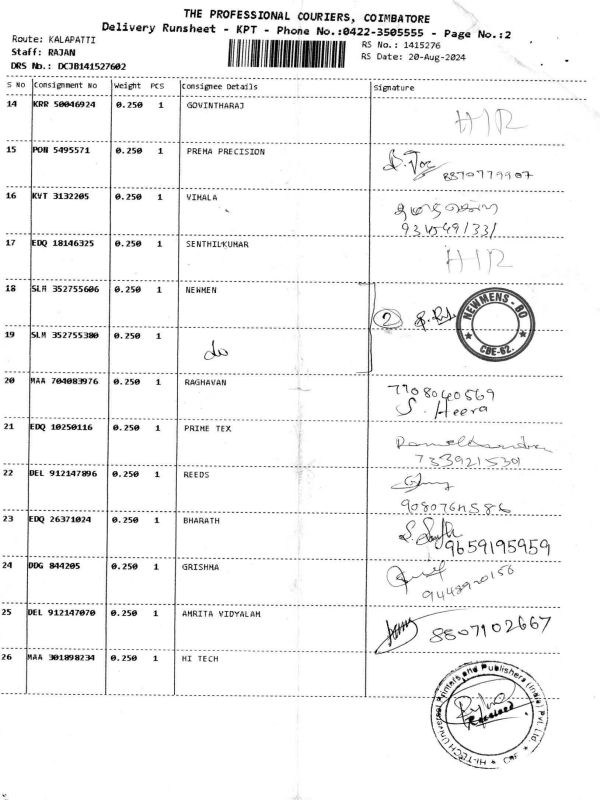 THE PROFESSIONAL COURIERS, COIMBATORE
Delivery Runsheet - KPT - Phone No.:0422-3505555 - Page No.:2
Route: KALAPATTI
Staff: RAJAN
DRS No.: DCJB141527602
RS No.: 1415276
RS Date: 20-Aug-2024
S No Consignment No Weight PCS Consignee Details Signature
14 KRR 50046924 0.250 1 GOVINTHARAJ H/R
15 PON 5495571 0.250 1 PREMA PRECISION
8870779907
16 KVT 3132205 0.250 1 VIMALA
17 EDQ 18146325 0.250 1 SENTHILKUMAR H/R
18 SLM 352755606 0.250 1 NEWMEN 2
NEWMENS - BO
CBE-62.
19 SLM 352755380 0.250 1 do
20 MAA 704083976 0.250 1 RAGHAVAN 7708040569
S. Heera
21 EDQ 10250116 0.250 1 PRIME TEX
22 DEL 912147896 0.250 1 REEDS
23 EDQ 26371024 0.250 1 BHARATH
9659195959
24 DDG 844205 0.250 1 GRISHMA
25 DEL 912147070 0.250 1 AMRITA VIDYALAM 8807102667
26 MAA 301898234 0.250 1 HI TECH
HI-TECH Universal Printers and Publishers (India) Pvt. Ltd. * CBE *
Received